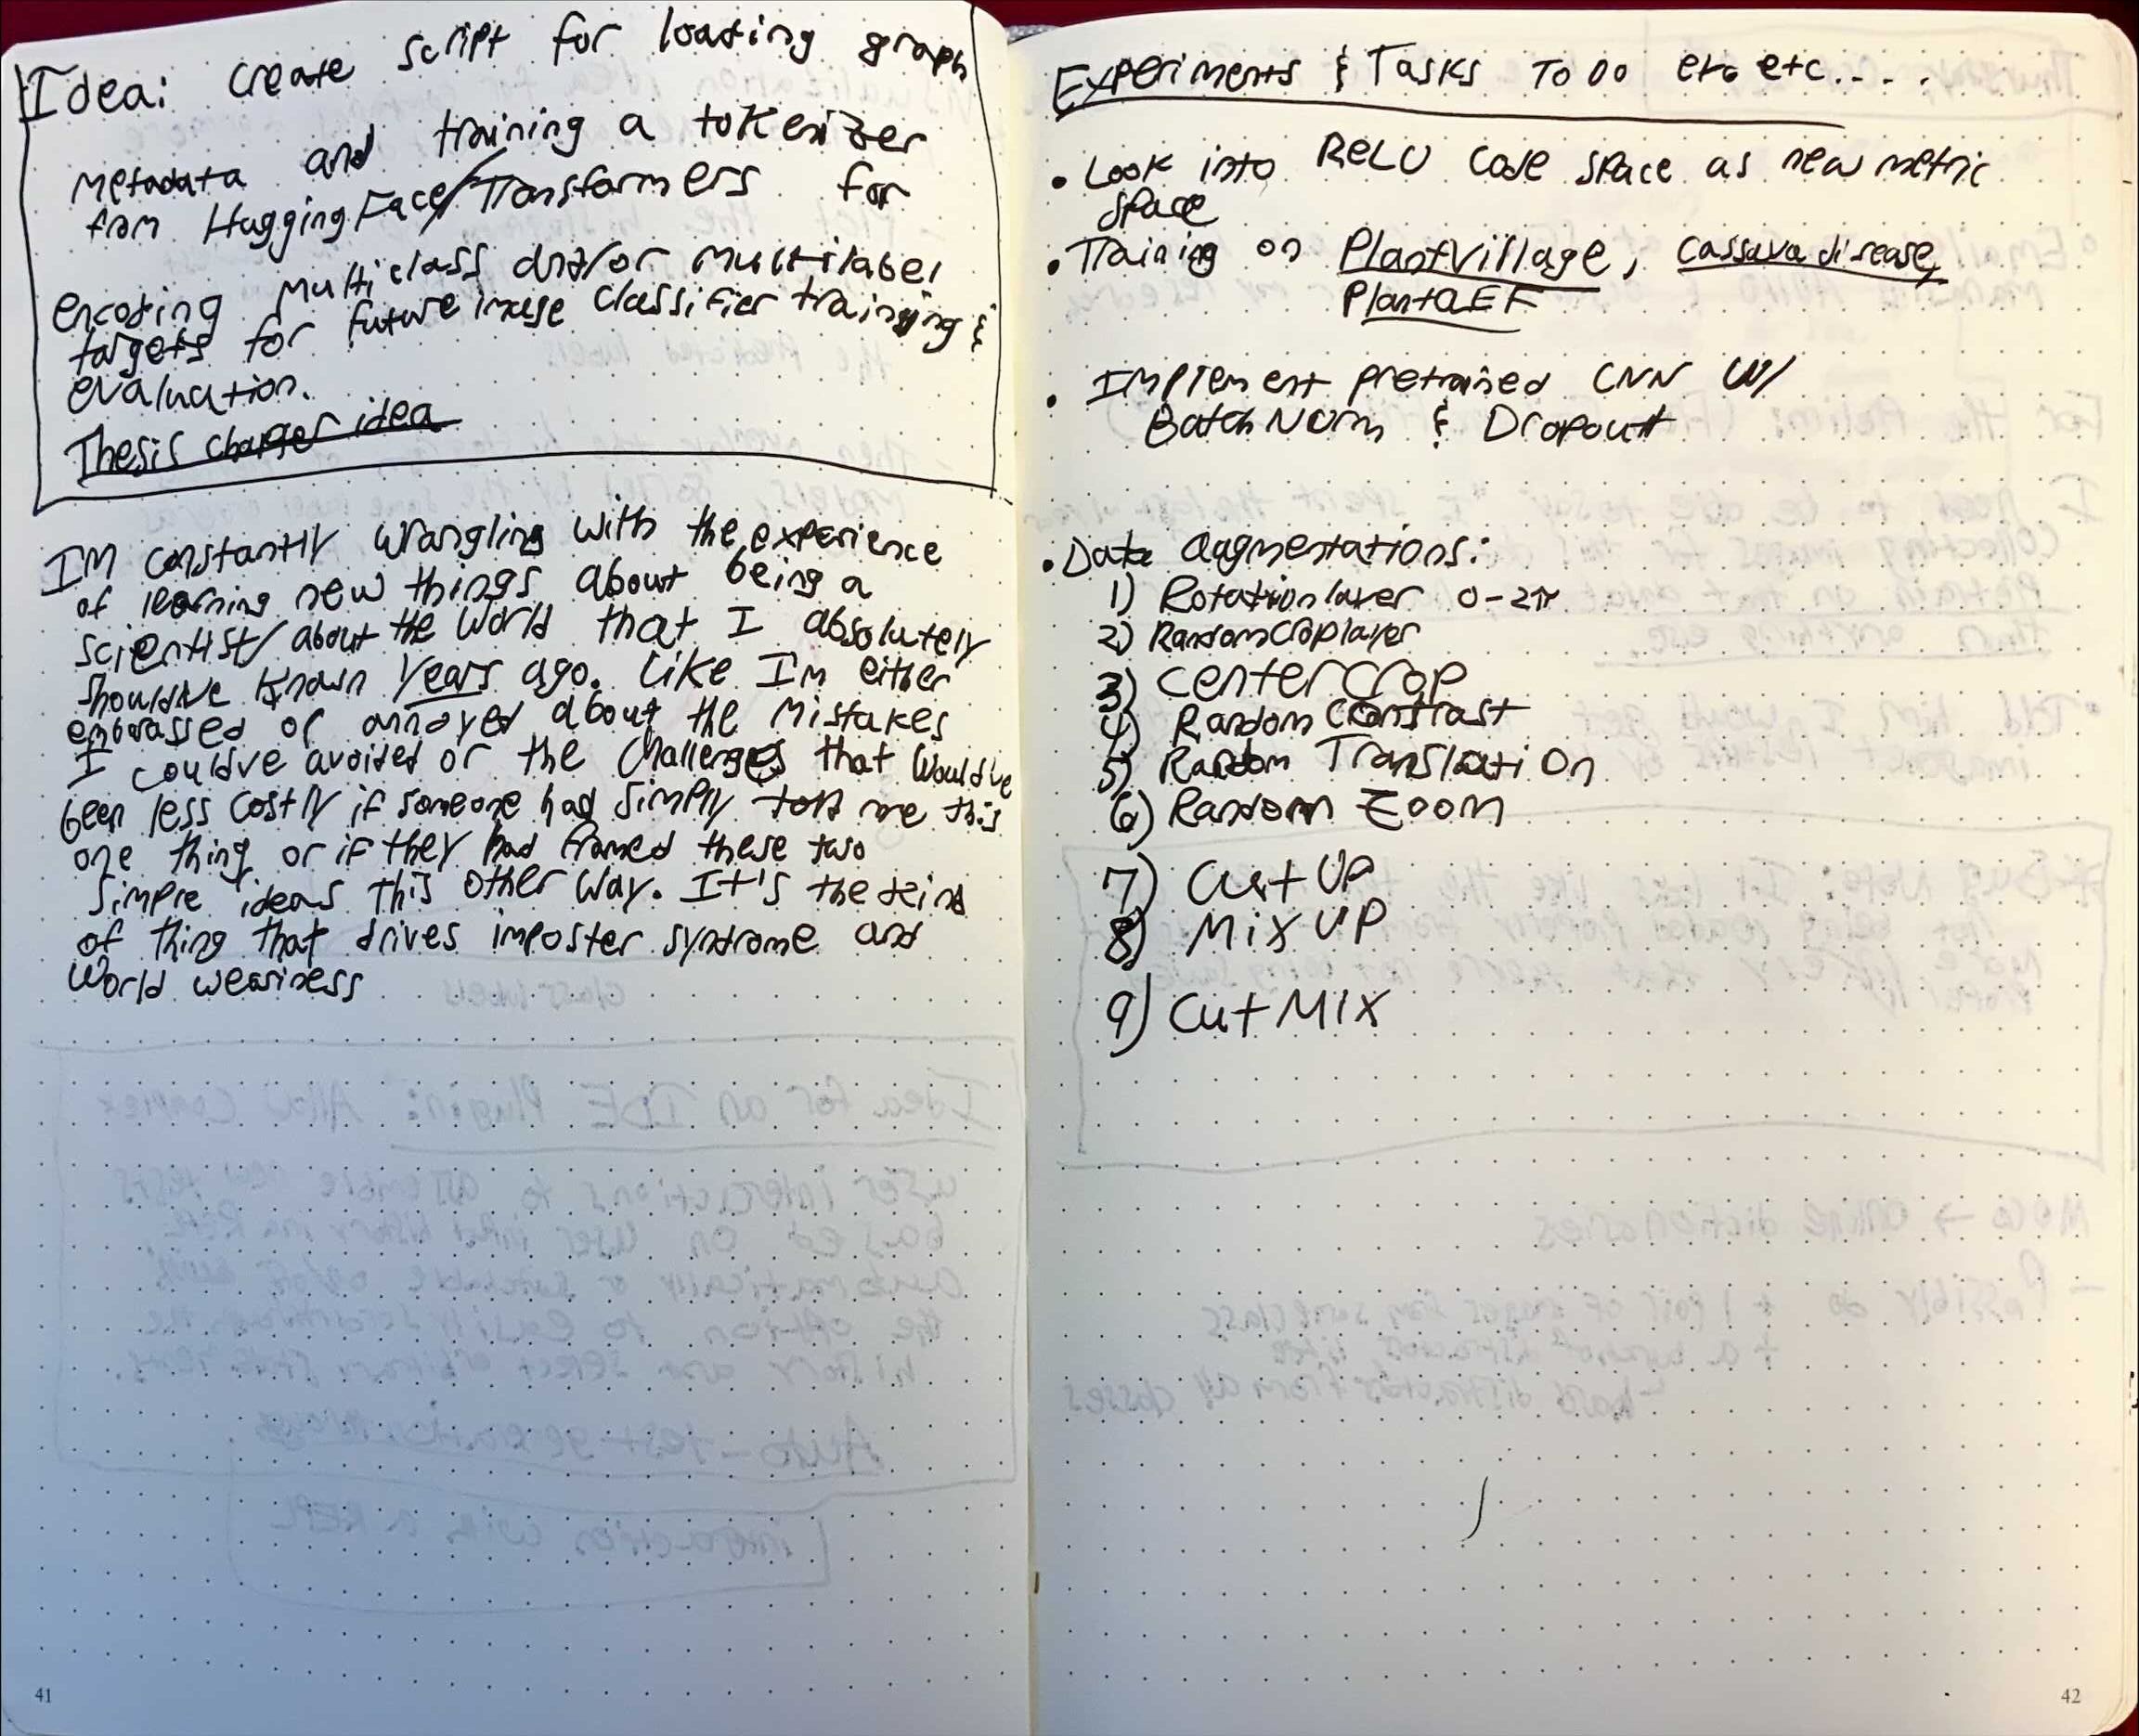 Idea: Create script for loading graph
metadata and training a tokenizer
from HuggingFace/Transformers for
encoding multiclass and/or multilabel
targets for future image classifier training &
evaluation.
Thesis chapter idea
IM constantly wrangling with the experience
of learning new things about being a
scientist/about the world that I absolutely
should've known years ago. Like I'm either
embarassed or annoyed about the mistakes
I could've avoided or the challenges that would've
been less costly if someone had simply told me this
one thing or if they had framed these two
simple ideas this other way. It's the kind
of thing that drives imposter syndrome and
world weariness
41
Experiments & Tasks TO DO etc etc....
• Look into RELU Code space as new metric
space
• Training on PlantVillage, Cassava disease,
PlantCLEF
• Implement pretrained CNN w/
BatchNorm & Dropout
• Data augmentations:
1) Rotation layer 0-2π
2) RandomCroplayer
3) Center Crop
4) Random Contrast
5) Random Translation
6) Random Zoom
7) Cut UP
8) Mix UP
9) Cut MIX
42